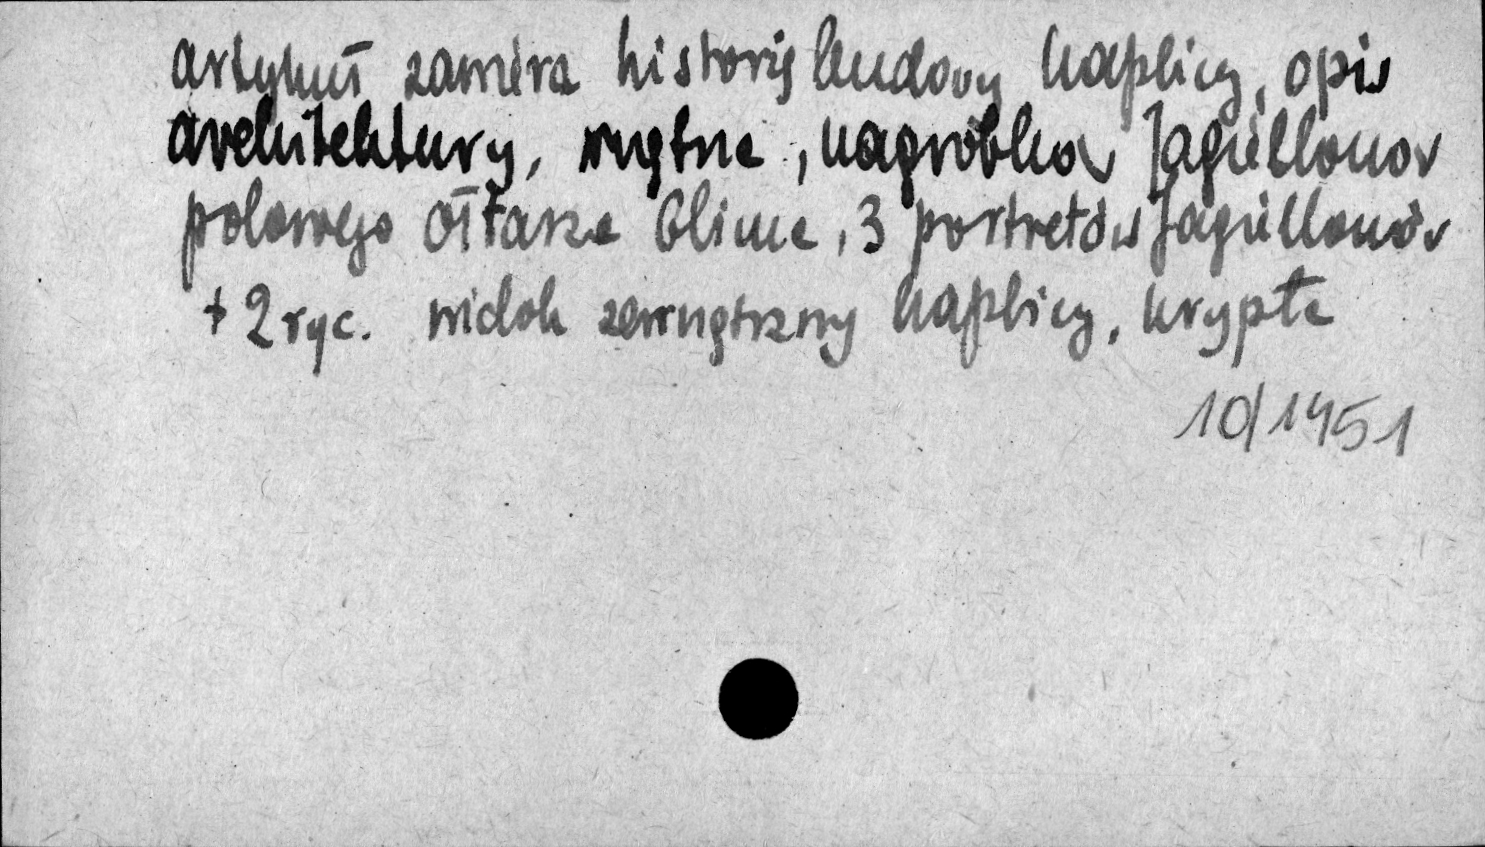 artykuł zawiera historię budowy kaplicy, opis
architektury, wnętrza, nagrobków Jagiellonów
polowego ołtarza 3 portretów Jagiellonów
+ 2 ryc. widok zewnętrzny kaplicy, krypta
10/1951